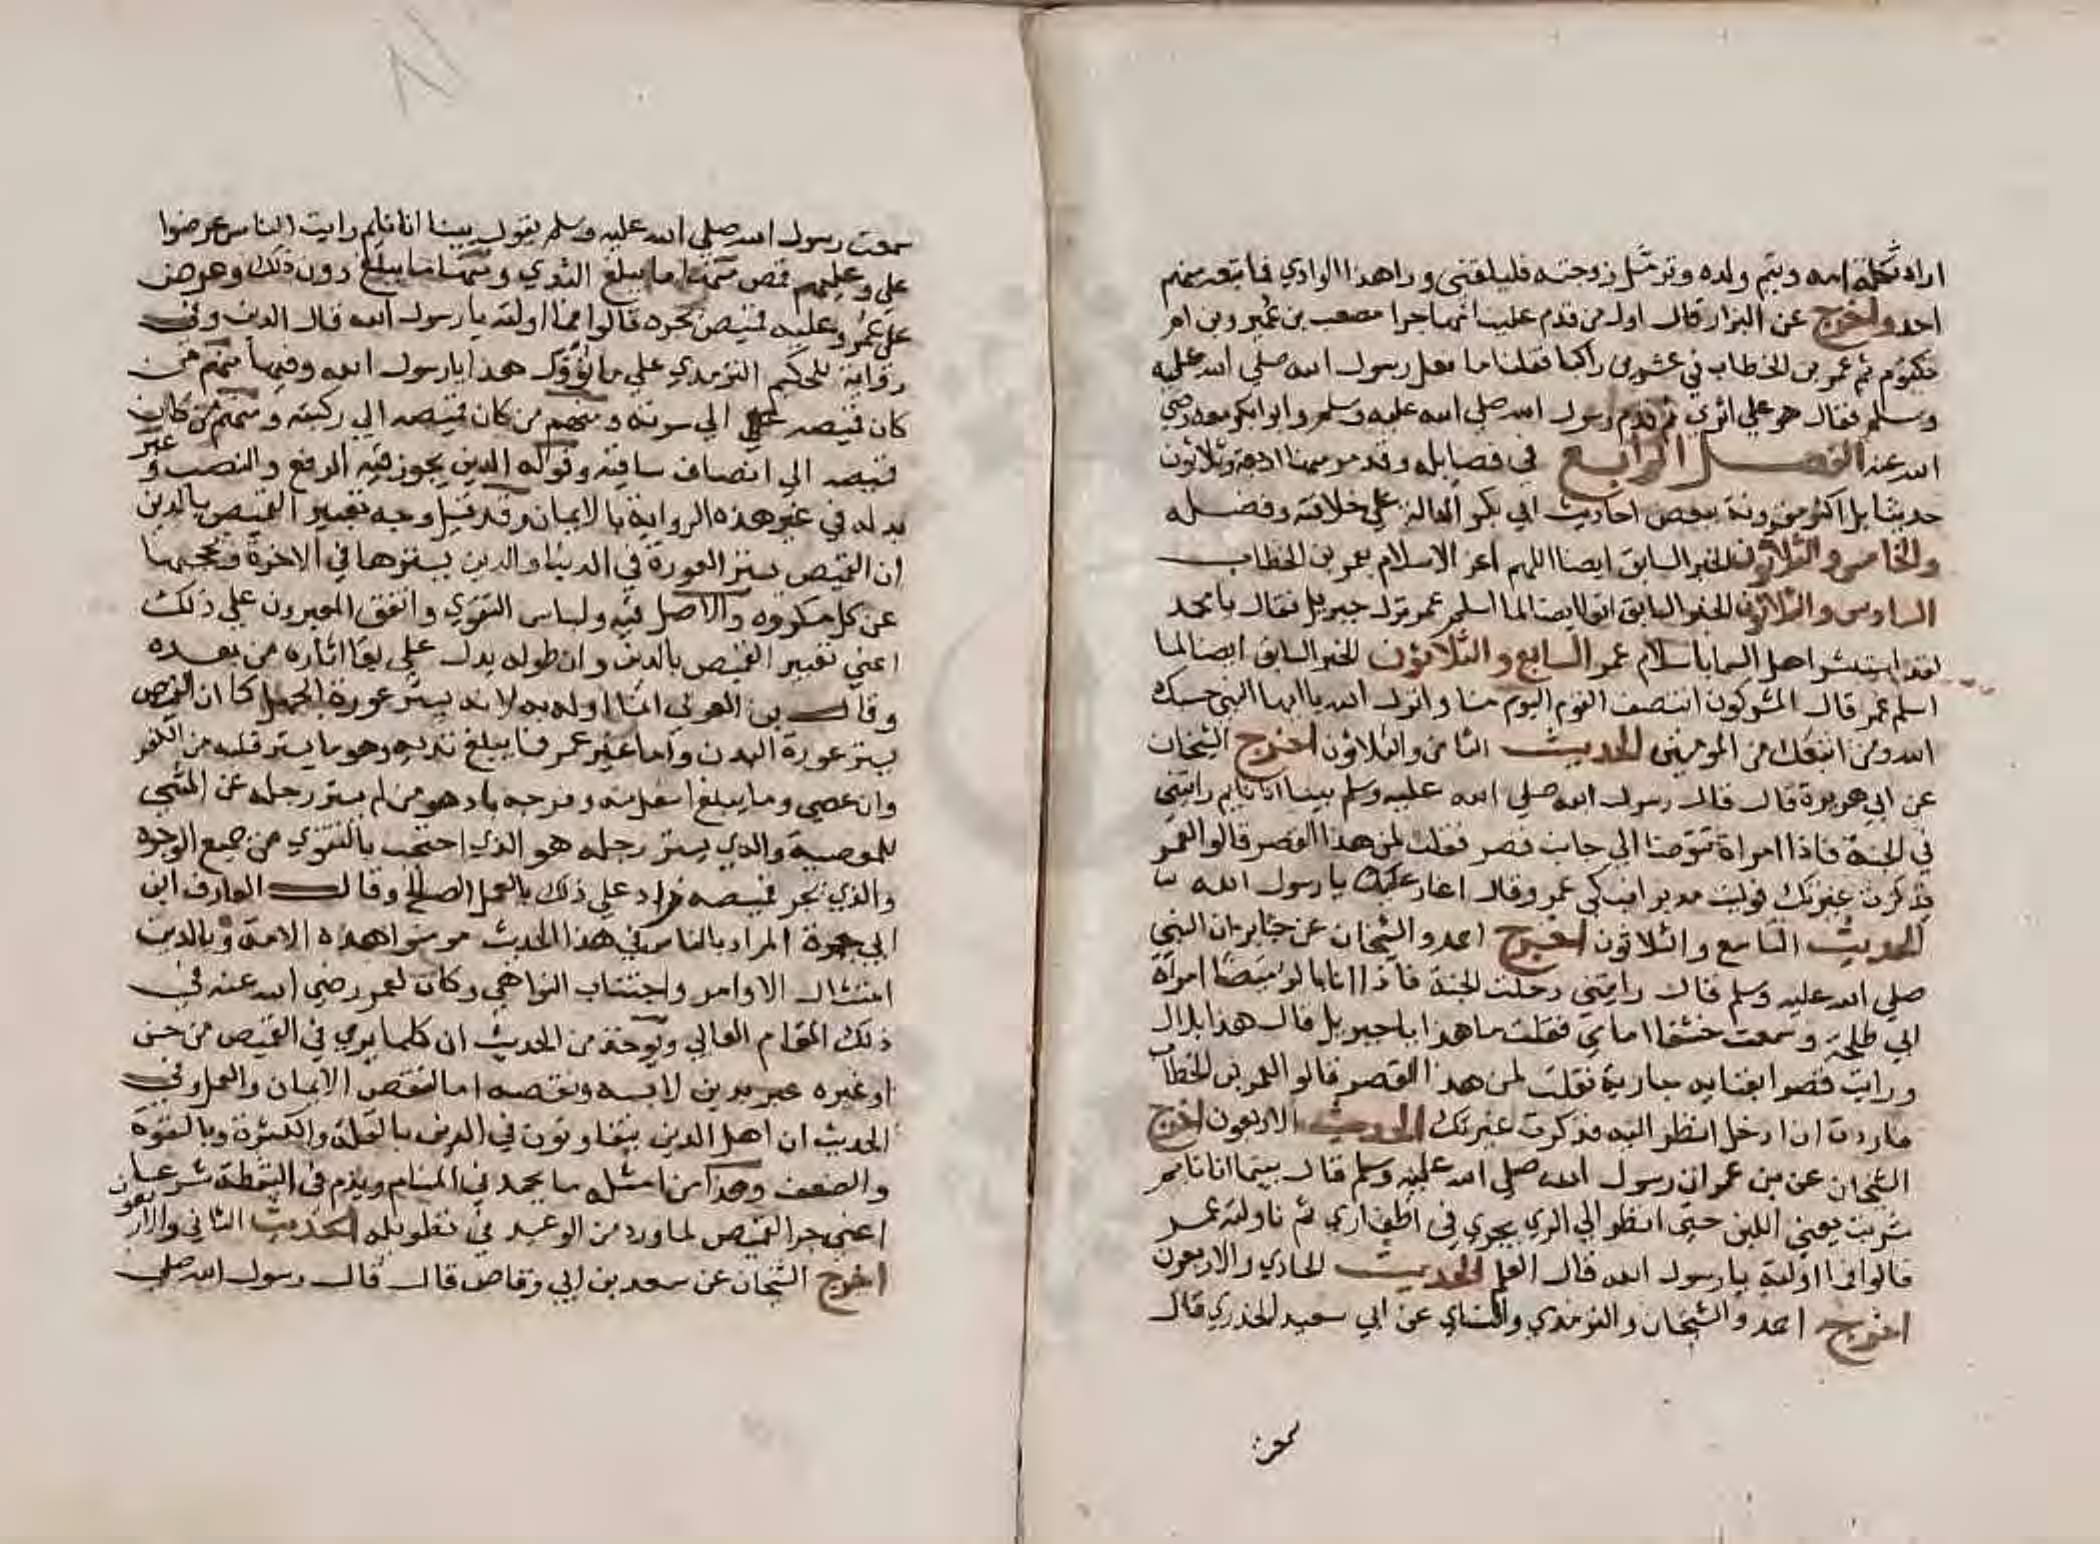 اراد تثكلة امه ويتم ولده وترمل زوجته فليلقني وراهذا الوادي فما تبعه منهم
احد واخرج عن البرا قال اول من قدم علينا مهاجرا مصعب بن عمير وبن ام
مكتوم ثم عمر بن الخطاب في عشرين راكبا فقلنا ما فعل رسول الله صلي الله عليه
وسلم فقال هو علي اثري ثم قدم رسول الله صلي الله عليه وسلم وابوا بكر معه رضي
الله عنه الفصل الرابع في فضايله وقد مر منها اربعة وثلاثون
حديثا بل اكثر مقرونة ببعض احاديث ابي بكر الدالة علي خلافته وفضله
والخامس والثلاثون الخبر السابق ايضا اللهم اعز الاسلام بعمر بن الخطاب
السادس والثلاثون الخبر السابق ايضا لما اسلم عمر نزل جبريل فقال يا محمد
لقد استبشر اهل السما باسلام عمر السابع والثلاثون الخبر السابق ايضا لما
اسلم عمر قال المشركون انتصف القوم اليوم منا وانزل الله يا ايها النبي حسبك
الله ومن اتبعك من المومنين الحديث الثامن والثلاثون اخرج الشيخان
عن ابي هريرة قال قال رسول الله صلي الله عليه وسلم بينا انا نايم رايتني
في الجنة فاذا امراة تتوضا الي جانب قصر فقلت لمن هذا القصر قالوا لعمر
فذكرت غيرتك فوليت مدبرا فبكي عمر وقال اعار عليك يا رسول الله
الحديث التاسع والثلاثون اخرج احمد والشيخان عن جابر ان النبي
صلي الله عليه وسلم قال رايتني دخلت الجنة فاذا انا بالرميصا امراة
ابي طلحة وسمعت خشفا امامي فقلت ما هذا يا جبريل قال هذا بلال
ورايت قصرا بفنايه جارية فقلت لمن هذا القصر قالوا لعمر بن الخطاب
فاردت ان ادخل انظر اليه فذكرت غيرتك الحديث الاربعون اخرج
الشيخان عن بن عمر ان رسول الله صلي الله عليه وسلم قال بينما انا نايم
شربت يعني اللبن حتي انظر الي الري يجري في اظفاري ثم ناولته عمر
قالوا فما اولته يا رسول الله قال العلم الحديث الحادي والاربعون
اخرج احمد والشيخان والترمذي والنساي عن ابي سعيد الخدري قال
سمعت
سمعت رسول الله صلي الله عليه وسلم يقول بينا انا نايم رايت الناس عرضوا
علي وعليهم قمص فمنها ما يبلغ الثدي ومنها ما يبلغ دون ذلك وعرض
علي عمر وعليه قميص يجره قالوا فما اولته يا رسول الله قال الدين وفي
رواية للحكيم الترمذي علي ما تؤول هذا يا رسول الله وفيها فمنهم من
كان قميصه الي سرته ومنهم من كان قميصه الي ركبته ومنهم من كان
قميصه الي انصاف ساقيه وقوله الدين يجوز فيه الرفع والنصب وعبر
بدله في غير هذه الرواية بالايمان وقد قيل وجه تعبير القميص بالدين
ان القميص يستر العورة في الدنيا والدين يسترها في الاخرة ويحجبها
عن كل مكروه والاصل فيه ولباس التقوي واتفق المعبرون علي ذلك
اعني تعبير القميص بالدين وان طوله يدل علي بقا اثاره من بعده
وقال بن العربي انما اوله به لانه يستر عورة الجهل كما ان القميص
يستر عورة البدن واما غير عمر فما يبلغ ثدييه وهو ما يستر قلبه من الكفر
وان عصي وما يبلغ اسفل منه وفرجه باد هو من لم يستر رجله عن المشي
للمعصية والذي يستر رجله هو الذي احتجب بالتقوي من جميع الوجوه
والذي يجر قميصه زاد علي ذلك بالعمل الصالح وقال العارف ابن
ابي جمرة المراد بالناس في هذا الحديث مومنوا هذه الامة وبالدين
امتثال الاوامر واجتناب النواهي وكان لعمر رضي الله عنه في
ذلك المقام العالي ويوخذ من الحديث ان كلما يري في القميص من حسن
او غيره عبر بدين لابسه ونقصه اما لنقص الايمان والعمل وفي
الحديث ان اهل الدين يتفاوتون في الدين بالقلة والكثرة وبالقوة
والضعف وهذا من امثلة ما يحمد في المنام ويذم في اليقظة شرعا
اعني جر القميص لما ورد من الوعيد في تطويله الحديث الثاني والاربعون
اخرج الشيخان عن سعد بن ابي وقاص قال قال رسول الله صلي